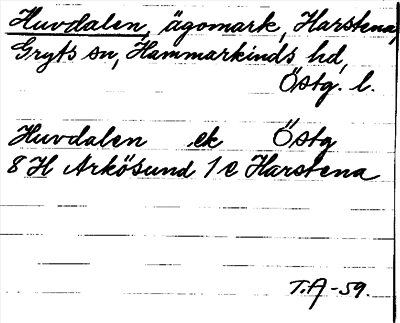 Huvdalen, ägomark, Harstena,
Gryts sn, Hammarkinds hd,
Östg. l.
Huvdalen ek Östg
8 H Arkösund 1 e Harstena
T.A-59.